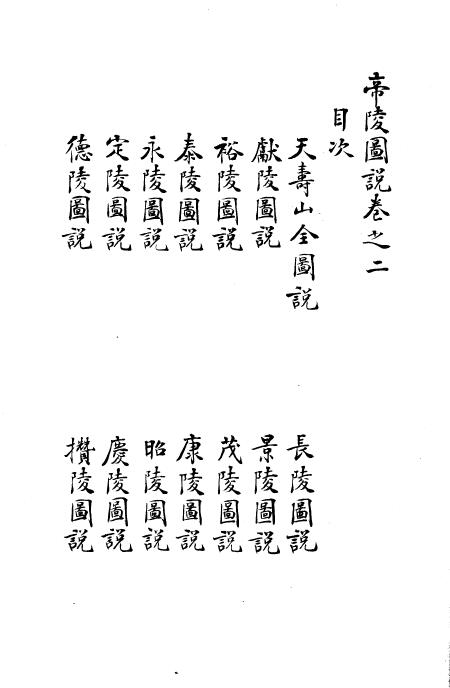 帝陵圖說卷之二
目次
天壽山全圖說
長陵圖說
獻陵圖說
景陵圖說
裕陵圖說
茂陵圖說
泰陵圖說
康陵圖說
永陵圖說
昭陵圖說
定陵圖說
慶陵圖說
德陵圖說
攢陵圖說